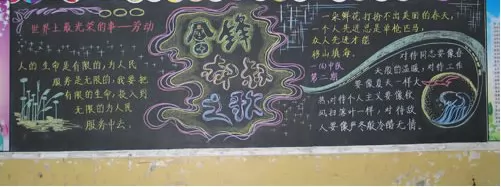 世界上最光荣的事—劳动
人的生命是有限的,为人民
服务是无限的,我要把
有限的生命,投入到
无限的为人民
服务中去。
雷锋
之歌
一朵鲜花打扮不出美丽的春天,
一个人先进总是单枪匹马,
众人先进才能
移山填海。
第二期
对待同志要像春
天般的温暖,对待工作
要像夏天一样火
热,对待个人主义要像秋
风扫落叶一样,对待敌
人要像严冬般冷酷无情。